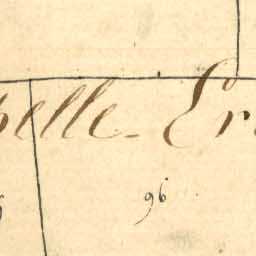 elle-Er
96